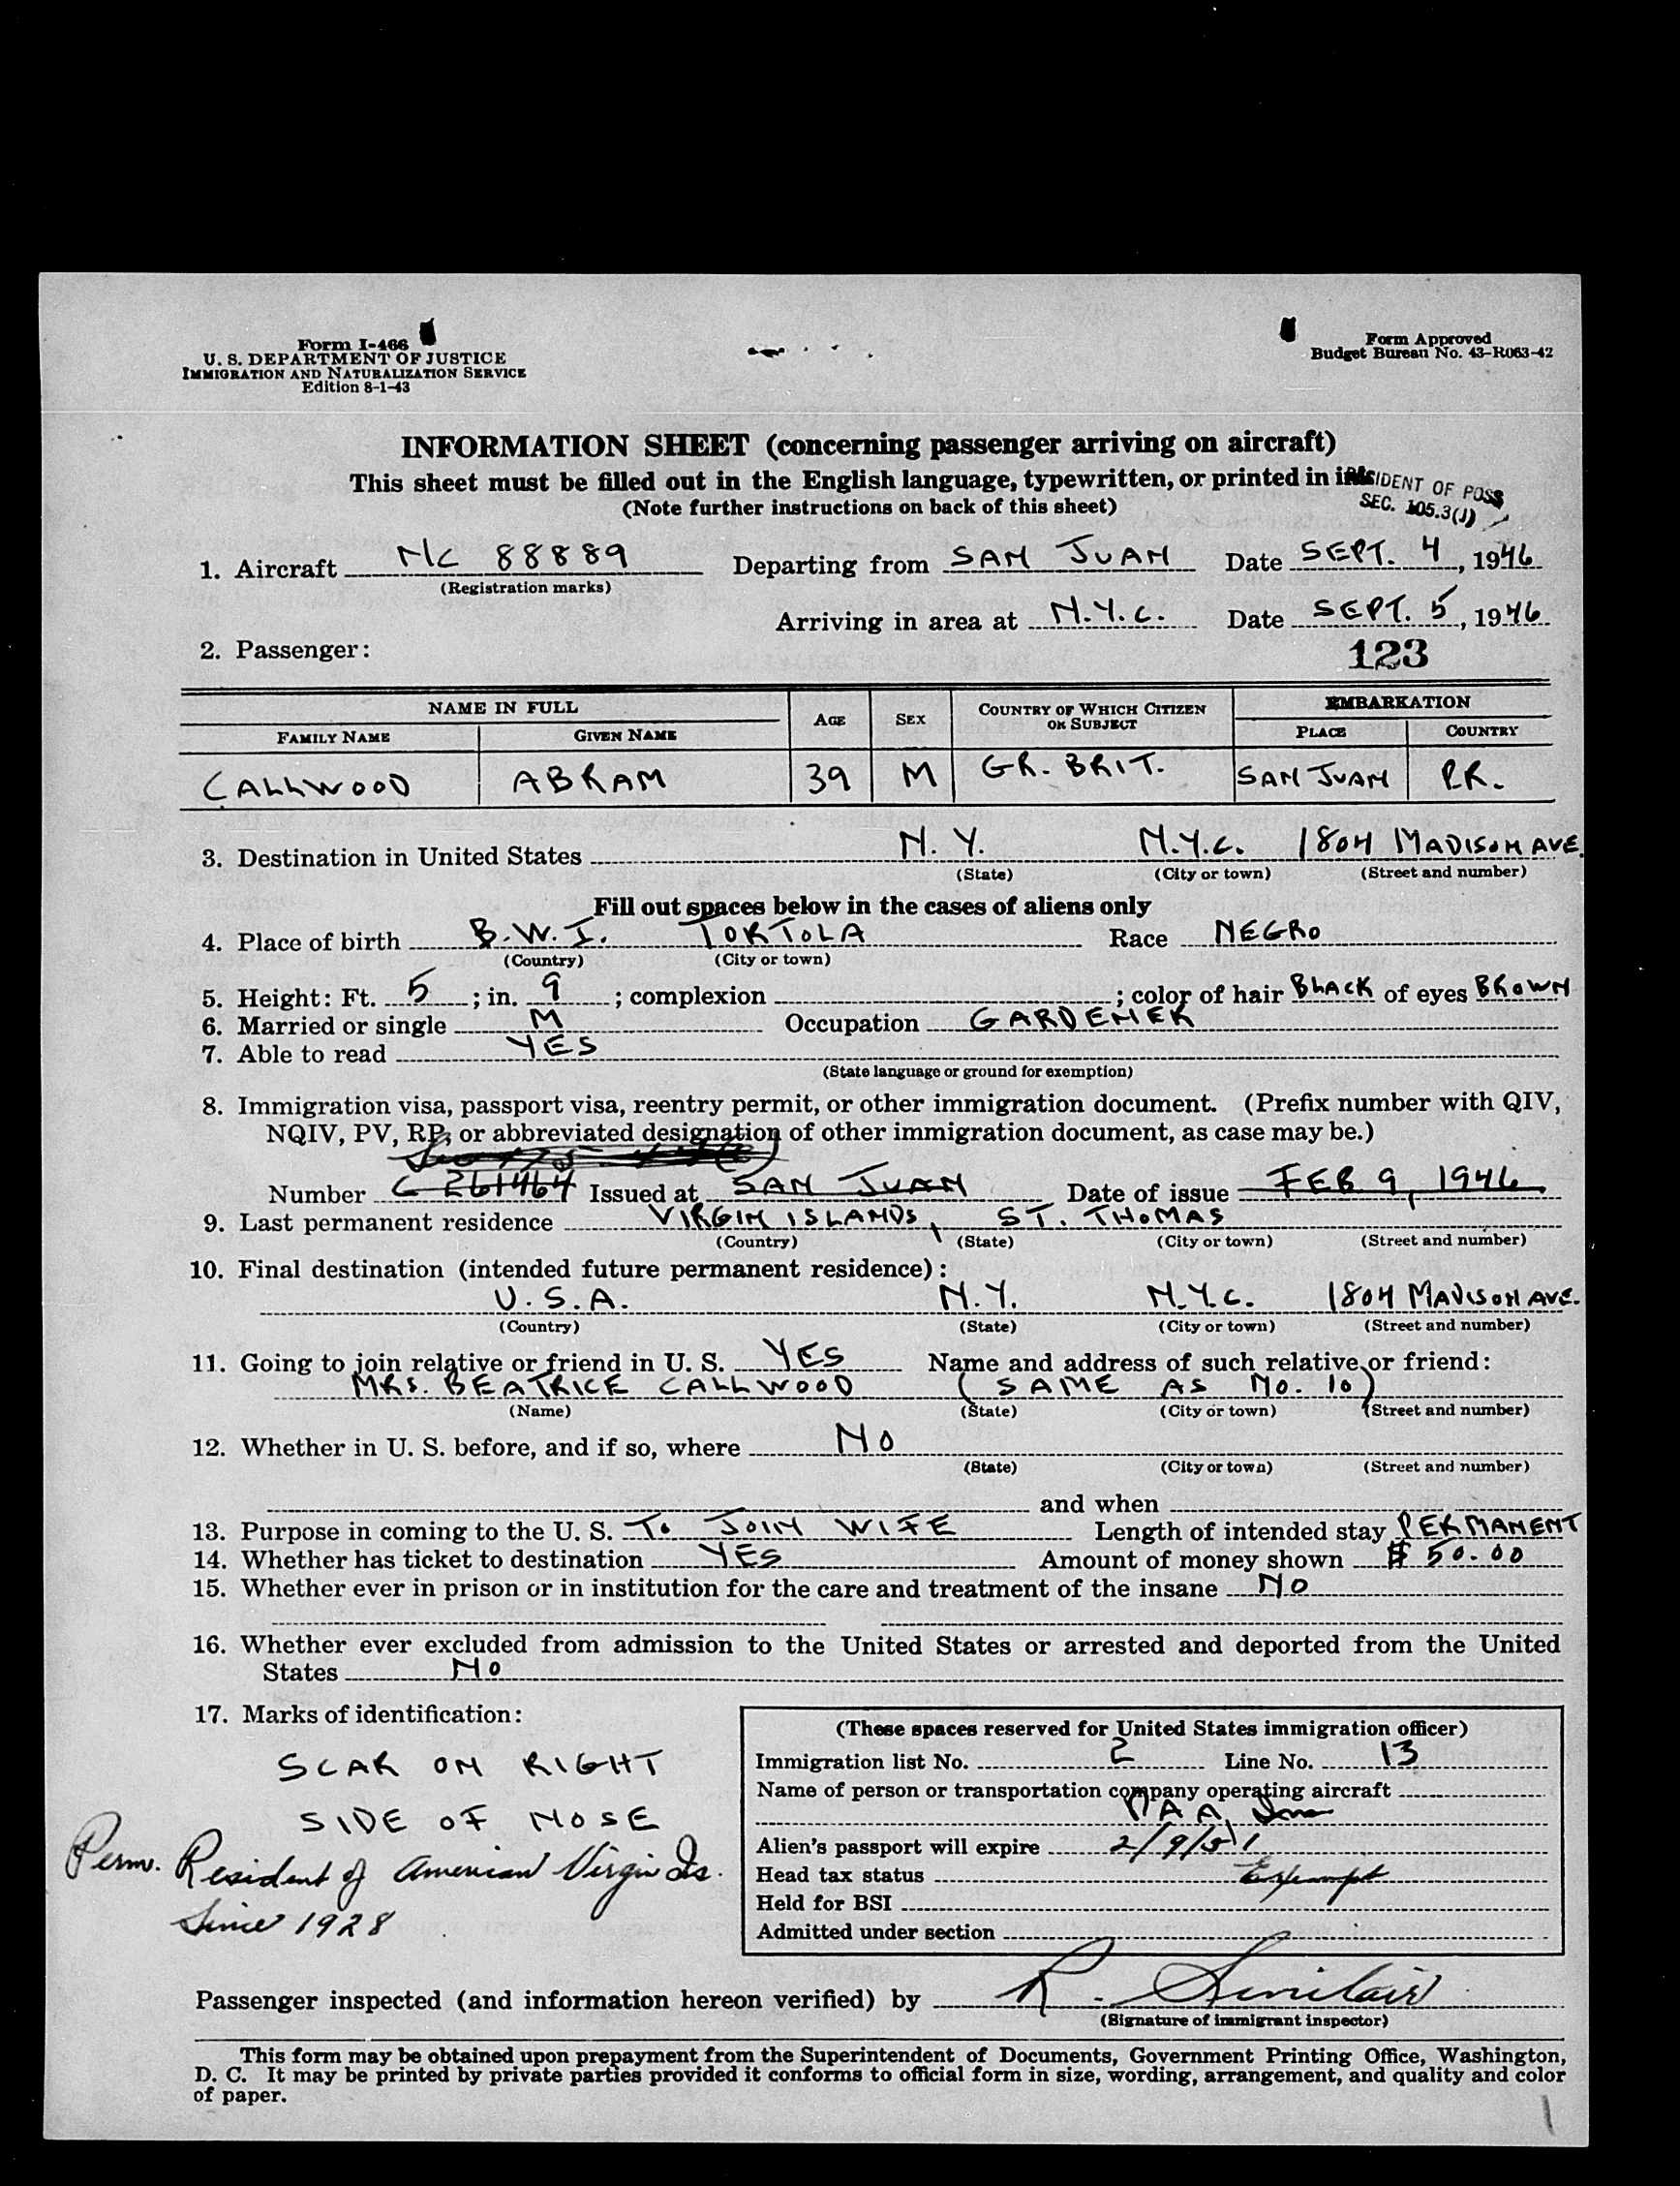 Form I-466
U. S. DEPARTMENT OF JUSTICE
IMMIGRATION AND NATURALIZATION SERVICE
Edition 8-1-43
Form Approved
Budget Bureau No. 43-R063-42
INFORMATION SHEET (concerning passenger arriving on aircraft)
This sheet must be filled out in the English language, typewritten, or printed in
(Note further instructions on back of this sheet)
RESIDENT OF POSS
SEC. 105.3(J)
1. Aircraft NC 88889 Departing from SAN JUAN Date SEPT. 4, 1946
(Registration marks)
Arriving in area at N.Y.C. Date SEPT. 5, 1946
2. Passenger: 123
NAME IN FULL AGE SEX COUNTRY OF WHICH CITIZEN OR SUBJECT EMBARKATION
FAMILY NAME GIVEN NAME PLACE COUNTRY
CALLWOOD ABRAM 39 M GR. BRIT. SAN JUAN P.R.
3. Destination in United States N.Y. N.Y.C. 1804 MADISON AVE.
(State) (City or town) (Street and number)
Fill out spaces below in the cases of aliens only
4. Place of birth B.W.I. TORTOLA Race NEGRO
(Country) (City or town)
5. Height: Ft. 5; in. 9; complexion ; color of hair BLACK of eyes BROWN
6. Married or single M Occupation GARDENER
7. Able to read YES
(State language or ground for exemption)
8. Immigration visa, passport visa, reentry permit, or other immigration document. (Prefix number with QIV,
NQIV, PV, RP, or abbreviated designation of other immigration document, as case may be.)
Number C 261464 Issued at SAN JUAN Date of issue FEB 9, 1946
9. Last permanent residence VIRGIN ISLANDS, ST. THOMAS
(Country) (State) (City or town) (Street and number)
10. Final destination (intended future permanent residence):
U.S.A. N.Y. N.Y.C. 1804 MADISON AVE.
(Country) (State) (City or town) (Street and number)
11. Going to join relative or friend in U. S. YES Name and address of such relative or friend:
MRS. BEATRICE CALLWOOD (SAME AS NO. 10)
(Name) (State) (City or town) (Street and number)
12. Whether in U. S. before, and if so, where NO
(State) (City or town) (Street and number)
and when
13. Purpose in coming to the U. S. TO JOIN WIFE Length of intended stay PERMANENT
14. Whether has ticket to destination YES Amount of money shown $ 50.00
15. Whether ever in prison or in institution for the care and treatment of the insane NO
16. Whether ever excluded from admission to the United States or arrested and deported from the United
States NO
17. Marks of identification:
SCAR ON RIGHT
SIDE OF NOSE
Perm. Resident of American Virgin Is.
Since 1928
(These spaces reserved for United States immigration officer)
Immigration list No. 2 Line No. 13
Name of person or transportation company operating aircraft
PAA Inc
Alien's passport will expire 2/9/51
Head tax status Exempt
Held for BSI
Admitted under section
Passenger inspected (and information hereon verified) by R. Sinclair
(Signature of immigrant inspector)
This form may be obtained upon prepayment from the Superintendent of Documents, Government Printing Office, Washington,
D. C. It may be printed by private parties provided it conforms to official form in size, wording, arrangement, and quality and color
of paper.